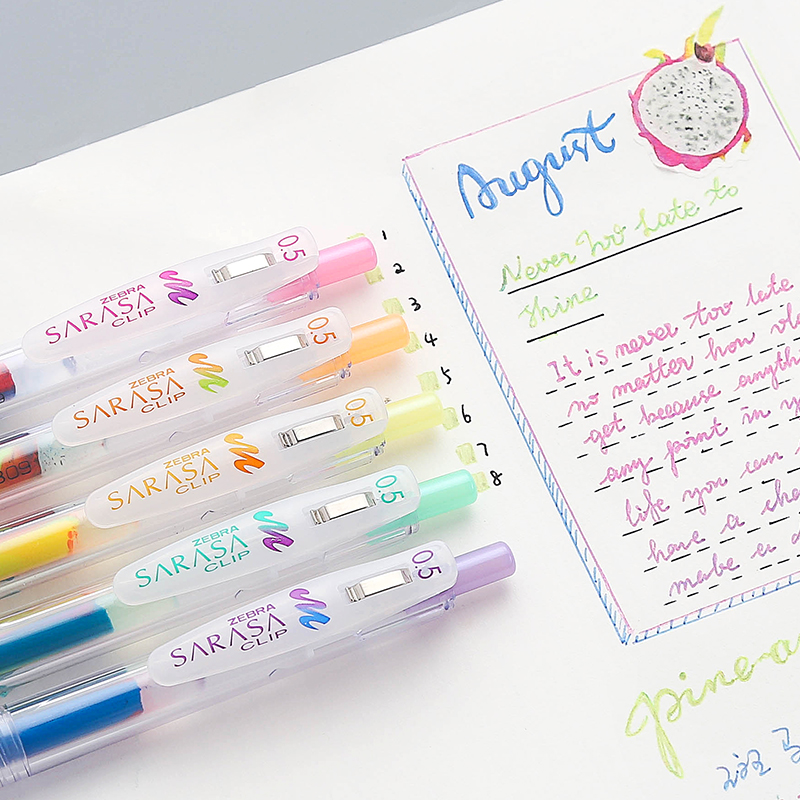 0.5
ZEBRA
SARASA
CLIP
0.5
ZEBRA
SARASA
CLIP
0.5
ZEBRA
SARASA
CLIP
0.5
ZEBRA
SARASA
CLIP
0.5
ZEBRA
SARASA
CLIP
1
2
3
4
5
6
7
8
August
Never Too Late to
Shine
It is never too late
no matter how
get because
any point in
life you can
have a
make a